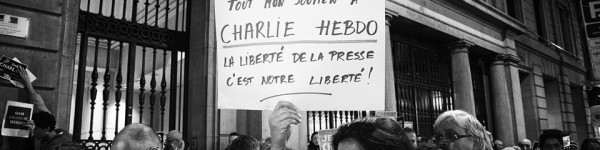 TOUT MON SOUTIEN À
CHARLIE HEBDO
LA LIBERTÉ DE LA PRESSE
C'EST NOTRE LIBERTÉ !